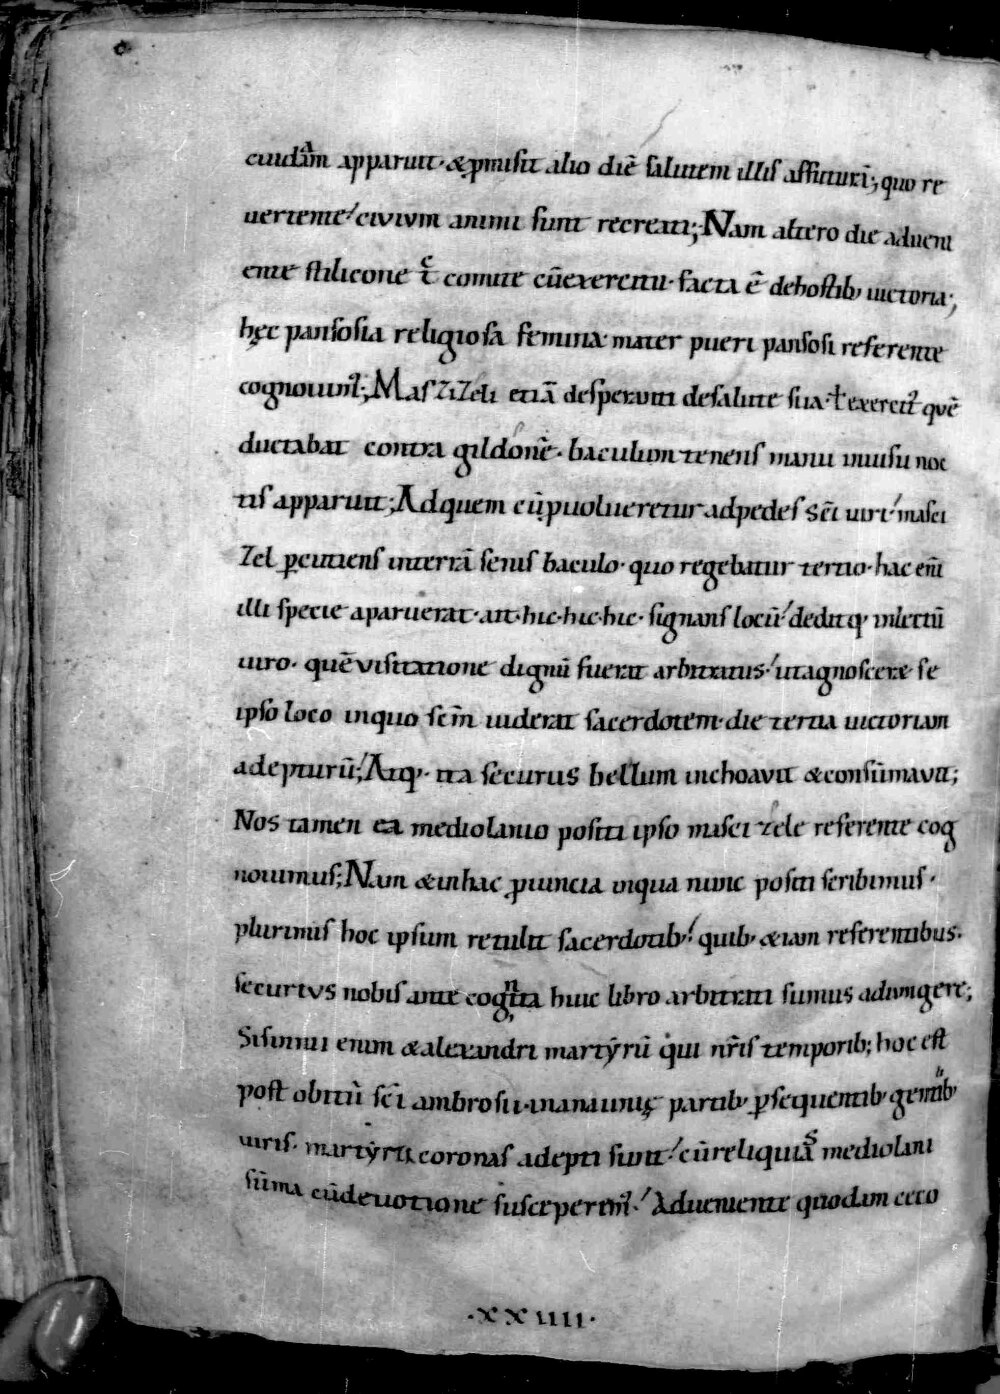 cuidā apparuit· & ꝓmisit alio diē salutem illis affuturā; quo re
uerteme᷑ ciuium animi sunt recreati; Nam altero die adueni
ente stilicone t̄c comite cū exercitu· facta ē de hostibꝰ uictoria;
hęc pansosia religiosa femina mater pueri pansosi referente
cognouim᷑; Maszizeli etiā desperanti de salute sua ł exercit᷑ quē
ductabat contra gildonē· baculum tenens manu in uisu noc
tis apparuit; Ad quem cū ꝓuolueretur ad pedes sc̄i uiri᷑ masci
zel ꝑcutiens in terrā senis baculo· quo regebatur tertio· hac eni᷑
illi specie aparuerat· ait· hic· hic· hic· signans locū᷑ dedit qꝫ intellectū
uiro· quē uisitatione dignū fuerat arbitratus᷑ ut agnosceret se
ipso loco in quo sc̄m uiderat sacerdotem· die tertia uictoriam
adepturū; Atqꝫ· ita securus bellum inchoauit & consūmauit;
Nos tamen ea mediolanio positi ipso mascizele referente cog
nouimus; Nam & in hac ꝓuincia in qua nunc positi scribimus·
plurimis hoc ipsum retulit sacerdotibꝰ᷑ quibꝰ etiam referentibus·
securius nobis ante cognita huic libro arbitrati sumus adiungere;
Sisinnii enim & alexandri martẏrū qui nr̄is temporibꝫ hoc est
post obitū sc̄i ambrosii· in anaunię partibꝰ ꝑsequentibꝰ gentilibꝰ
uiris· martẏrii coronas adepti sunt᷑ cū reliquias mediolani
sūma cū deuotione susceperim᷑᷑ Adueniente quodam ceco
·xxıııı·